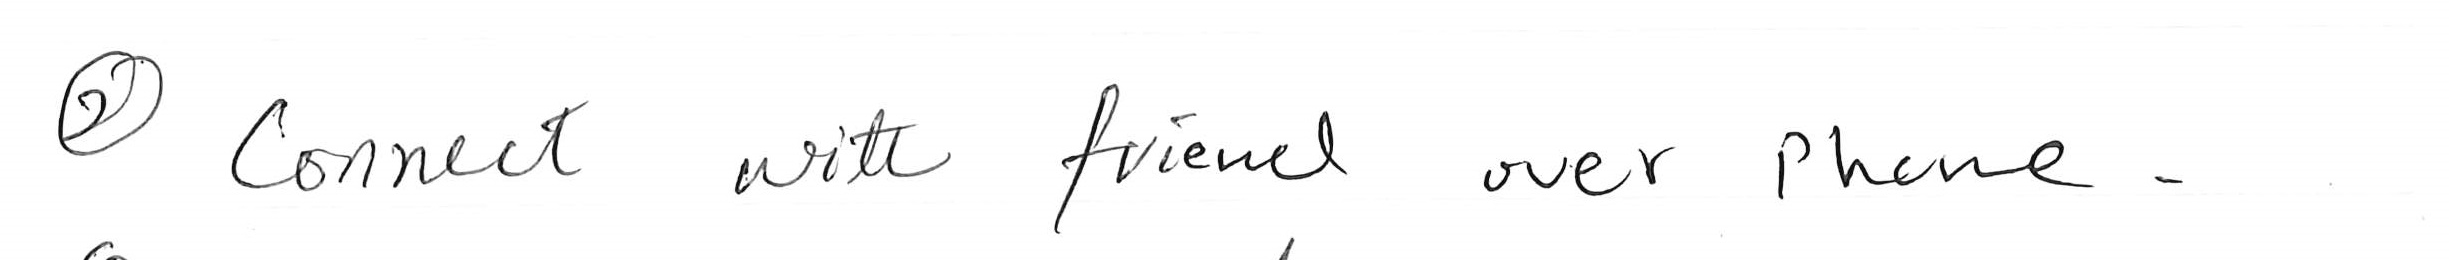 ② Connect with friend over phone.